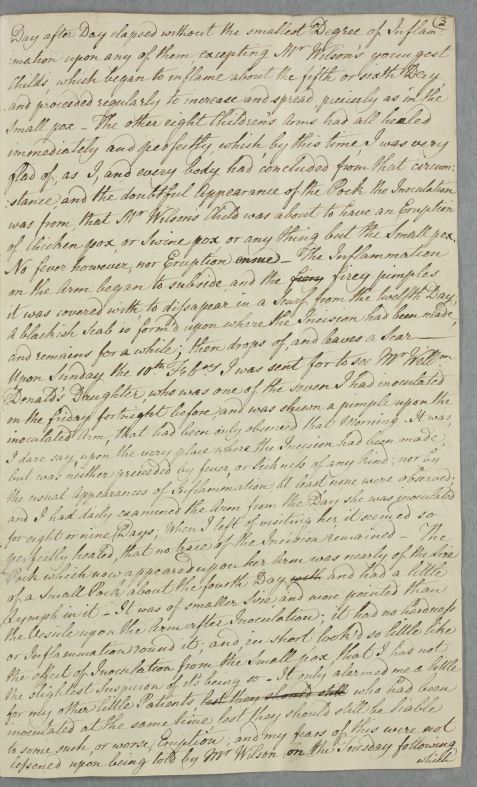 3
Day after Day elapsed without the smallest Degree of Inflam-
:mation upon any of them excepting Mr Wilson's youngest
Childs, which began to inflame about the fifth or sixth Day
and proceeded regularly to increase and spread precisely as in the
Small pox - The other eight Children's Arms had all healed
immediately and perfectly which by this time I was very
glad of, as I, and every body had concluded from that circum:
stance, and the doubtful Appearance of the Pock the Inoculation
was from, that Mr Wilsons Child was about to have an Eruption
of Chicken pox or Swine pox or any thing but the Small pox.
No fever however, nor Eruption ensue - The Inflammation
on the Arm began to subside and the firey pimples
it was covered with to dissapear in a Scurf from the twelfth Day;
A blackish Scab is form'd upon where the Incision had been made,
and remains for a while; then drops of, and leaves a Scar —
Upon Sunday the 10th Feby I was sent for to see Mr Willm
Donald's Daughter, who was one of the seven I had inoculated
on the friday fortnight before, and was shewn a pimple upon the
inoculated Arm, that had been only observed that Morning. It was,
I dare say, upon the very place where the Incision had been made,
but was neither preceded by fever, or Sickness of any kind; nor by
the usual appearances of Inflammation, at least none were observed;
and I had daily examined the Arm from the Day she was inoculated
for eight or nine Days; When I left of visiting her it seemed so
perfectly healed, that no trace of the Incision remained - The
Pock which now appeared upon her Arm was nearly of the Size
of a Small Pock about the fourth Day with and had a little
Lymph in it - It was of smaller Size and more pointed than
the Vesicle upon the Arm after Inoculation; it had no hardness
or Inflammation round it; and in short look'd so little like
the effect of Inoculation from the Small pox that I had not
the slightest Suspicion of it's being so - It only alarmed me a little
for my other little Patients, lest they should still who had been
inoculated at the same time lest they should still be liable
to some such, or worse, Eruption; and my fears of this were not
lessened upon being told by Mr Wilson on the Tuesday following
which